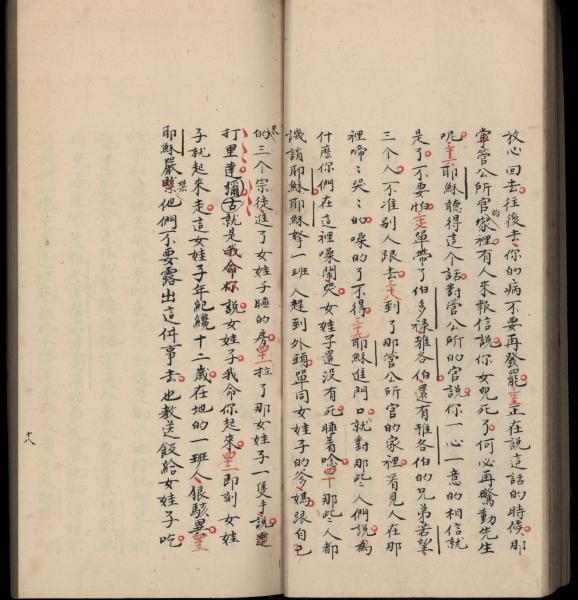 放心回去往後去你的病不要再發罷三五正在說這話的時候那
掌管公所官的家裡有人來報信說你女兒死了何必再驚動先生
呢三六耶穌聽得這个話對管公所的官說你一心一意的相信就
是了不要怕三七單帶了伯多祿雅各伯還有雅各伯的兄弟若望
三个人不准别人跟去三八到了那管公所官的家裡看見人在那
裡啼啼哭哭的嗓的了不得三九耶穌進門口就對那些人們說為
什麽你們在這裡嗓鬧哭女娃子還没有死睡着唸四十那些人都
譏誚耶穌耶穌拏一班人趕到外頭單同女娃子的爹媽跟自己
來的三个宗徒進了女娃子睡的房四一拉了那女娃子一隻手說
打里達彌古就是我命你說女娃子我命你起來四二即刻女娃
子就起來走這女娃子年紀纔十二歲在地的一班人狠駭異四三
耶穌嚴緊禁他們不要露出這件事去也教送飯給女娃子吃
十八